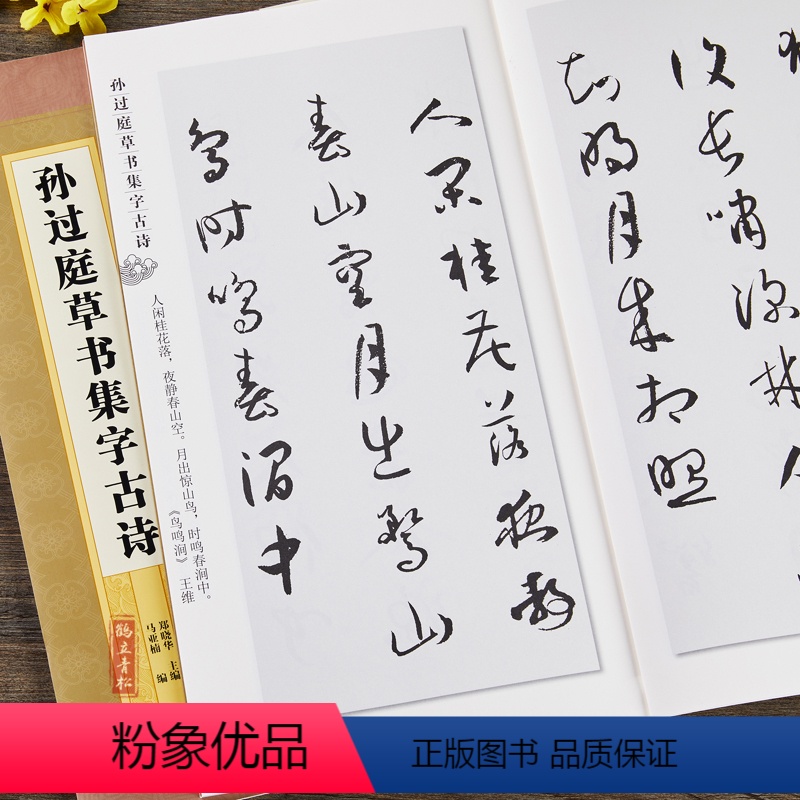 孙过庭草书集字古诗
郑晓华 主编
马亚楠 编
鹤立青松
孙过庭草书集字古诗
人闲桂花落，夜静春山空。月出惊山鸟，时鸣春涧中。
《鸟鸣涧》 王维
人闲桂花落夜静
春山空月出惊山
鸟时鸣春涧中
复长啸深林
知明月来相照
粉象优品
正版图书 品质保证